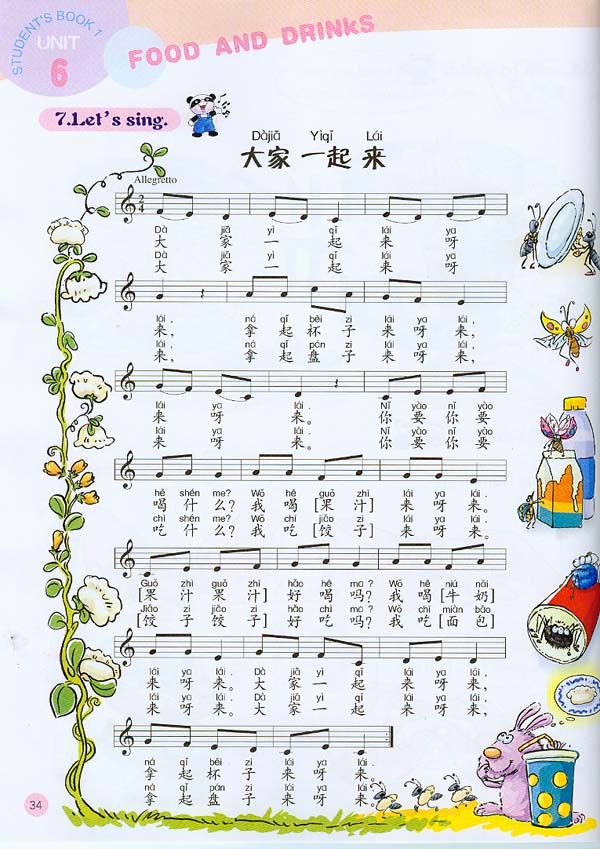 STUDENT'S BOOK 1
UNIT
6
FOOD AND DRINKS
7.Let's sing.
Dàjiā Yìqǐ Lái
大家一起来
Allegretto
2/4
Dà jiā yì qǐ lái ya
大 家 一 起 来 呀
Dà jiā yì qǐ lái ya
大 家 一 起 来 呀
lái, ná qǐ bēi zi lái ya lái.
来, 拿 起 杯 子 来 呀 来,
lái, ná qǐ pán zi lái ya lái.
来, 拿 起 盘 子 来 呀 来,
lái ya lái. Nǐ yào nǐ yào
来 呀 来。 你 要 你 要
lái ya lái. Nǐ yào nǐ yào
来 呀 来。 你 要 你 要
hē shén me? Wǒ hē guǒ zhī lái ya lái.
喝 什 么? 我 喝 [果 汁] 来 呀 来。
chī shén me? Wǒ chī jiǎo zi lái ya lái.
吃 什 么? 我 吃 [饺 子] 来 呀 来。
Guǒ zhī guǒ zhī hǎo hē ma? Wǒ hē niú nǎi
[果 汁 果 汁] 好 喝 吗? 我 喝 [牛 奶]
Jiǎo zi jiǎo zi hǎo chī ma? Wǒ chī miàn bāo
[饺 子 饺 子] 好 吃 吗? 我 吃 [面 包]
lái ya lái. Dà jiā yì qǐ lái ya lái.
来 呀 来。 大 家 一 起 来 呀 来,
lái ya lái. Dà jiā yì qǐ lái ya lái.
来 呀 来。 大 家 一 起 来 呀 来,
ná qǐ bēi zi lái ya lái.
拿 起 杯 子 来 呀 来。
ná qǐ pán zi lái ya lái.
拿 起 盘 子 来 呀 来。
34